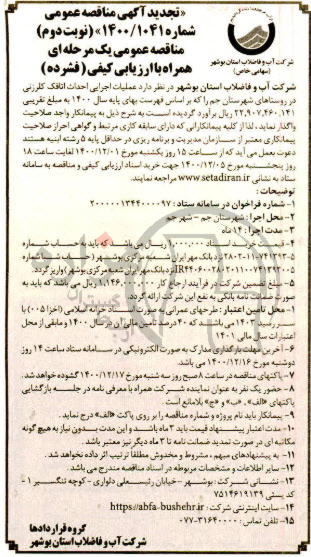 «تجدید آگهی مناقصه عمومی
شماره ۱۴۰۰/۱۰۴۱» (نوبت دوم)
مناقصه عمومی یک مرحله ای
همراه با ارزیابی کیفی (فشرده)
شرکت آب و فاضلاب استان بوشهر
(سهامی خاص)
شرکت آب و فاضلاب استان بوشهر در نظر دارد عملیات اجرایی احداث اتاقک کلرزنی
در روستاهای شهرستان جم را که بر اساس فهرست بهای پایه سال ۱۴۰۰ به مبلغ تقریبی
۲۲,۹۰۷,۴۶۰,۱۴۱ ریال برآورد گردیده است به شرح ذیل به پیمانکار واجد صلاحیت
واگذار نماید، لذا از کلیه پیمانکارانی که دارای سابقه کاری مرتبط و گواهی احراز صلاحیت
پیمانکاری معتبر از سازمان مدیریت و برنامه ریزی در حداقل پایه ۵ رشته ابنیه هستند
دعوت بعمل می آید که از ساعت ۱۵ روز یکشنبه مورخ ۱۴۰۰/۱۲/۰۱ لغایت ساعت ۱۸
روز پنجشنبه مورخ ۱۴۰۰/۱۲/۰۵ جهت خرید اسناد ارزیابی کیفی و مناقصه به سامانه
ستاد به نشانی www.setadiran.ir مراجعه نمایند.
توضیحات :
۱- شماره فراخوان در سامانه ستاد : ۲۰۰۰۰۰۱۳۴۴۰۰۰۰۹۷
۲- محل اجرا: شهرستان جم – شهر جم
۳- مدت اجرا: ۱۴ ماه
۴- قیمت خرید اسناد ۱,۰۰۰,۰۰۰ ریال می باشد که باید به حساب شماره
نزد بانک مهر ایران شعبه مرکزی بوشهر ( حساب شبا شماره
نزد بانک مهر ایران شعبه مرکزی بوشهر) واریز گردد.
۵- مبلغ تضمین شرکت در فرآیند ارجاع کار ۱,۱۴۶,۰۰۰,۰۰۰ ریال می باشد که باید به
صورت ضمانت نامه بانکی به نفع این شرکت ارائه گردد.
۶- محل تأمین اعتبار : طرحهای عمرانی به صورت اسناد خزانه اسلامی (اخزا ۰۰۵) با
سررسید می باشند که ۴۰ درصد تأمین مالی آن در سال ۱۴۰۰ و مابقی از محل
اعتبارات سال مالی ۱۴۰۱
۶- آخرین مهلت بارگذاری مدارک به صورت الکترونیکی در سامانه ستاد ساعت ۱۴ روز
دوشنبه مورخ ۱۴۰۰/۱۲/۱۶ می باشد.
۷- پاکتهای مناقصه در ساعت ۸ صبح روز سه شنبه مورخ ۱۴۰۰/۱۲/۱۷ گشوده خواهد شد.
۸- حضور یک نفر به عنوان نماینده شرکت همراه با معرفی نامه در جلسه بازگشایی
پاکتهای «الف»، «ب» و «ج» بلامانع است.
۹- پیمانکار باید نام پروژه و شماره مناقصه را بر روی پاکت «الف» درج نماید.
۱۰- مدت اعتبار پیشنهاد قیمت باید ۳ ماه باشد و این مدت بدون نیاز به هیچ گونه
مکاتبه ای در صورت تمدید ضمانت نامه تا ۳ ماه دیگر نیز معتبر باشد.
۱۱- به پیشنهادهای مبهم ، مشروط و مخدوش مطلقا ترتیب اثر داده نخواهد شد.
۱۲- سایر اطلاعات و مشخصات مربوطه در اسناد مناقصه مندرج می باشد.
۱۳- نشانی شرکت: بوشهر –خیابان رئیسعلی دلواری – کوچه تنگسیر ۱ –
کد پستی ۷۵۱۴۶۱۹۱۳۹
۱۴- سایت اینترنتی شرکت: https://abfa-bushehr.ir
۱۵- تلفن تماس : ۳۱۶۴۰۰۰۰-۰۷۷
گروه قراردادها
شرکت آب و فاضلاب استان بوشهر